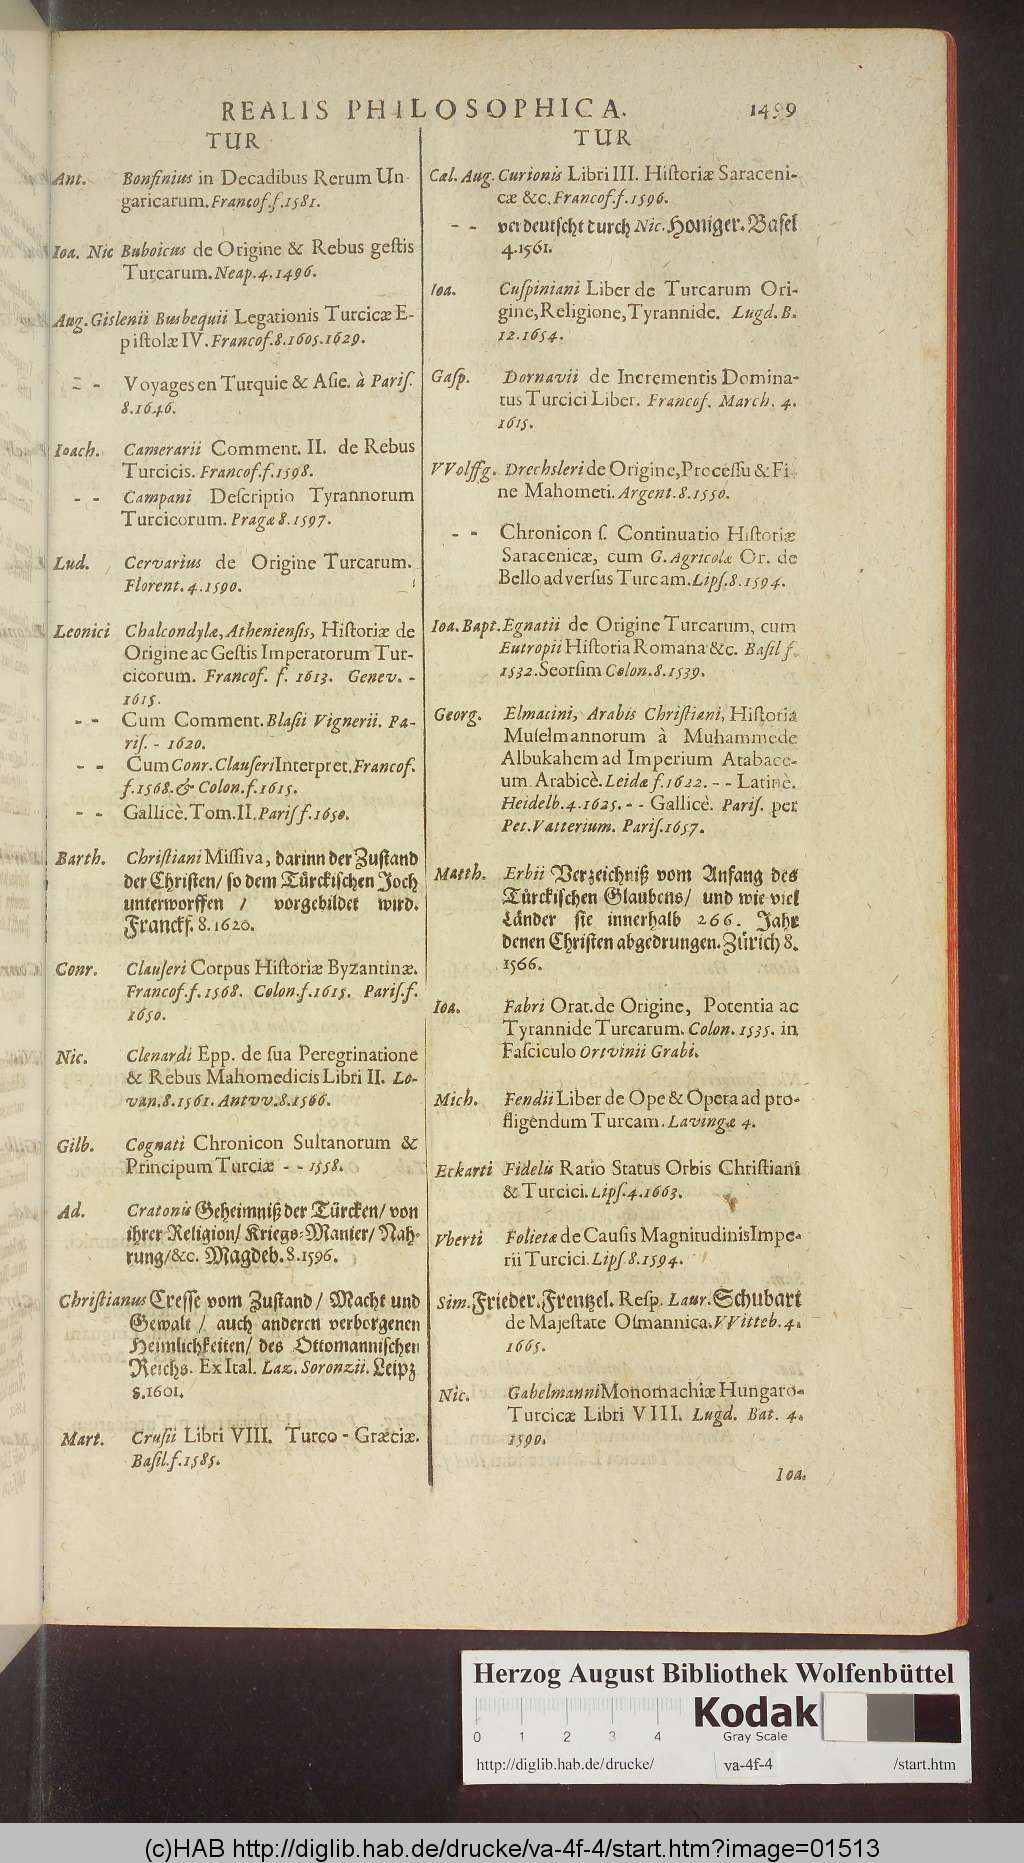 REALIS PHILOSOPHICA. 1499
TUR
Ant. Bonfinius in Decadibus Rerum Un-
garicarum. Francof. f. 1581.
Ioa. Nic Buboicus de Origine & Rebus gestis
Turcarum. Neap. 4. 1496.
Aug. Gislenii Busbequii Legationis Turcicæ E-
pistolæ IV. Francof. 8. 1605. 1629.
- - Voyages en Turquie & Asie. à Paris.
8. 1646.
Ioach. Camerarii Comment. II. de Rebus
Turcicis. Francof. f. 1598.
- - Campani Descriptio Tyrannorum
Turcicorum. Pragæ 8. 1597.
Lud. Cervarius de Origine Turcarum.
Florent. 4. 1590.
Leonici Chalcondylæ, Atheniensis, Historiæ de
Origine ac Gestis Imperatorum Tur-
cicorum. Francof. f. 1613. Genev. -
1615.
- - Cum Comment. Blasii Vignerii. Pa-
ris. - 1620.
- - Cum Conr. Clauseri Interpret. Francof.
f. 1568. & Colon. f. 1615.
- - Gallicè. Tom. II. Paris f. 1650.
Barth. Christiani Missiva, darinn der Zustand
der Christen/ so dem Türckischen Joch
unterworffen / vorgebildet wird.
Franckf. 8. 1620.
Conr. Clauseri Corpus Historiæ Byzantinæ.
Francof. f. 1568. Colon. f. 1615. Paris. f.
1650.
Nic. Clenardi Epp. de sua Peregrinatione
& Rebus Mahomedicis Libri II. Lo-
van. 8. 1561. Antvv. 8. 1566.
Gilb. Cognati Chronicon Sultanorum &
Principum Turciæ - - 1558.
Ad. Cratonis Geheimniß der Türcken/ von
ihrer Religion/ Kriegs-Manier/ Nah-
rung/ &c. Magdeb. 8. 1596.
Christianus Cresse vom Zustand / Macht und
Gewalt / auch anderen verborgenen
Heimlichkeiten/ des Ottomannischen
Reichs. Ex Ital. Laz. Soronzii. Leipz
8. 1601.
Mart. Crusii Libri VIII. Turco-Græciæ.
Basil. f. 1585.
TUR
Cæl. Aug. Curionis Libri III. Historiæ Saraceni-
cæ &c. Francof. f. 1596.
- - verdeutscht durch Nic. Höniger. Basel
4. 1561.
Ioa. Cuspiniani Liber de Turcarum Ori-
gine, Religione, Tyrannide. Lugd. B.
12. 1654.
Gasp. Dornavii de Incrementis Domina-
tus Turcici Liber. Francof. March. 4.
1615.
VVolffg. Drechsleri de Origine, Processu & Fi
ne Mahometi. Argent. 8. 1550.
- - Chronicon s. Continuatio Historiæ
Saracenicæ, cum G. Agricolæ Or. de
Bello adversus Turcam. Lips. 8. 1594.
Ioa. Bapt. Egnatii de Origine Turcarum, cum
Eutropii Historia Romana &c. Basil f.
1532. Seorsim Colon. 8. 1539.
Georg. Elmacini, Arabis Christiani, Historia
Muselmannorum à Muhammede
Albukahem ad Imperium Atabace-
um Arabicè. Leidæ f. 1622. - - Latinè.
Heidelb. 4. 1625. - - Gallicè. Paris. per
Pet. Vatterium. Paris. 1657.
Matth. Erbii Verzeichniß vom Anfang des
Türckischen Glaubens/ und wie viel
Länder sie innerhalb 266. Jahr
denen Christen abgedrungen. Zürich 8.
1566.
Ioa. Fabri Orat. de Origine, Potentia ac
Tyrannide Turcarum. Colon. 1535. in
Fasciculo Ortvinii Grabi.
Mich. Fendii Liber de Ope & Opera ad pro-
fligendum Turcam. Lavingæ 4.
Eckarti Fidelis Ratio Status Orbis Christiani
& Turcici. Lips. 4. 1663.
Vberti Folietæ de Causis Magnitudinis Impe-
rii Turcici. Lips 8. 1594.
Sim. Frieder. Frentzel. Resp. Laur. Schubart
de Majestate Osmannica. VVitteb. 4.
1665.
Nic. Gabelmanni Monomachiæ Hungaro-
Turcicæ Libri VIII. Lugd. Bat. 4.
1590.
Ioa.
Herzog August Bibliothek Wolfenbüttel
0 1 2 3 4
Kodak
Gray Scale
http://diglib.hab.de/drucke/ va-4f-4 /start.htm
(c)HAB http://diglib.hab.de/drucke/va-4f-4/start.htm?image=01513